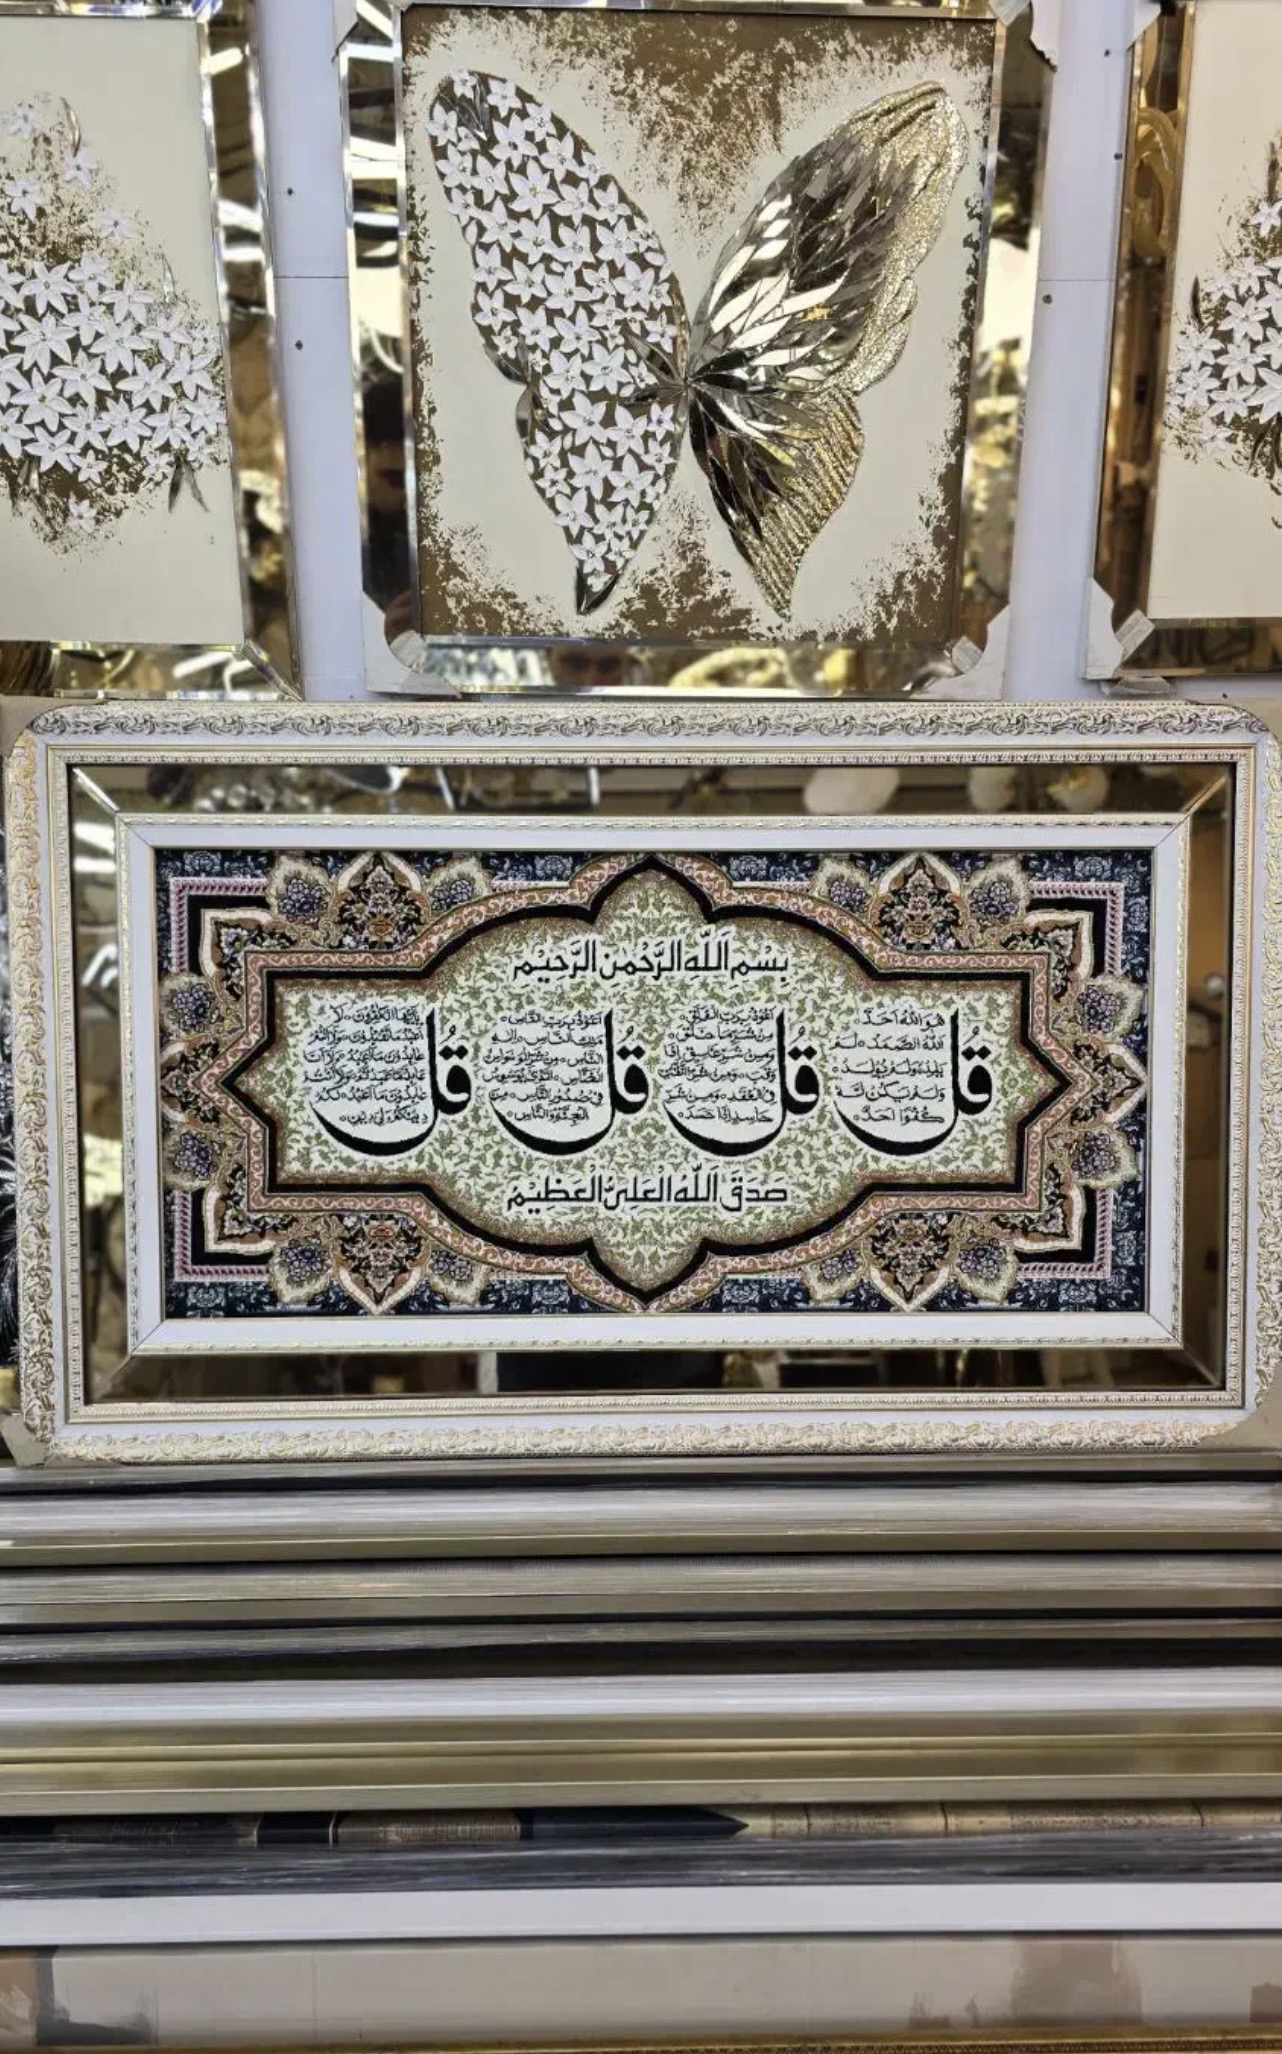 بِسْمِ اللّٰهِ الرَّحْمٰنِ الرَّحِيْمِ
قُل
هُوَ اللّٰهُ اَحَدٌ
اَللّٰهُ الصَّمَدُ لَمْ
يَلِدْ وَلَمْ يُولَدْ
وَلَمْ يَكُنْ لَهُ
كُفُوًا اَحَدٌ
قُل
اَعُوْذُ بِرَبِّ الْفَلَقِ
مِنْ شَرِّ مَا خَلَقَ
وَمِنْ شَرِّ غَاسِقٍ اِذَا
وَقَبَ وَمِنْ شَرِّ النَّفّٰثٰتِ
فِى الْعُقَدِ وَمِنْ شَرِّ
حَاسِدٍ اِذَا حَسَدَ
قُل
اَعُوْذُ بِرَبِّ النَّاسِ
مَلِكِ النَّاسِ اِلٰهِ
النَّاسِ مِنْ شَرِّ الْوَسْوَاسِ
الْخَنَّاسِ الَّذِى يُوَسْوِسُ
فِى صُدُورِ النَّاسِ مِنَ
الْجِنَّةِ وَالنَّاسِ
قُل
يٰاَيُّهَا الْكٰفِرُوْنَ لَا
اَعْبُدُ مَا تَعْبُدُوْنَ وَلَا اَنْتُمْ
عَابِدُوْنَ مَا اَعْبُدُ وَلَا اَنَا
عَابِدٌ مَا عَبَدْتُمْ وَلَا اَنْتُمْ
عَابِدُوْنَ مَا اَعْبُدُ لَكُمْ
دِيْنُكُمْ وَلِىَ دِيْنِ
صَدَقَ اللّٰهُ الْعَلِىُّ الْعَظِيْمُ